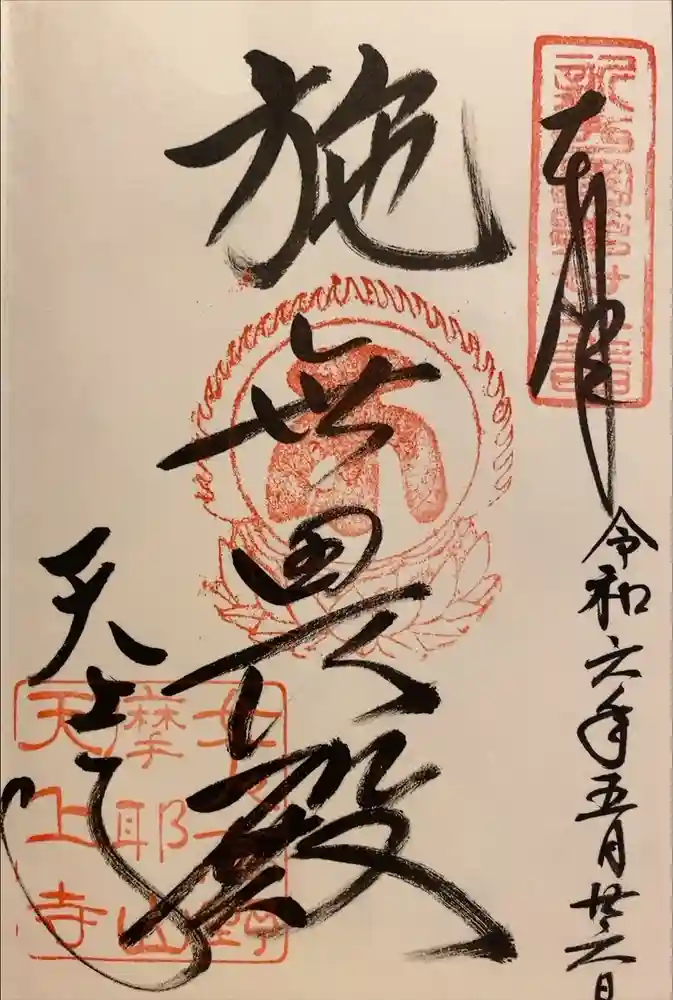 奉拝
令和六年五月廿六日
施無畏殿
天上寺
女人高野
摩耶山
天上寺